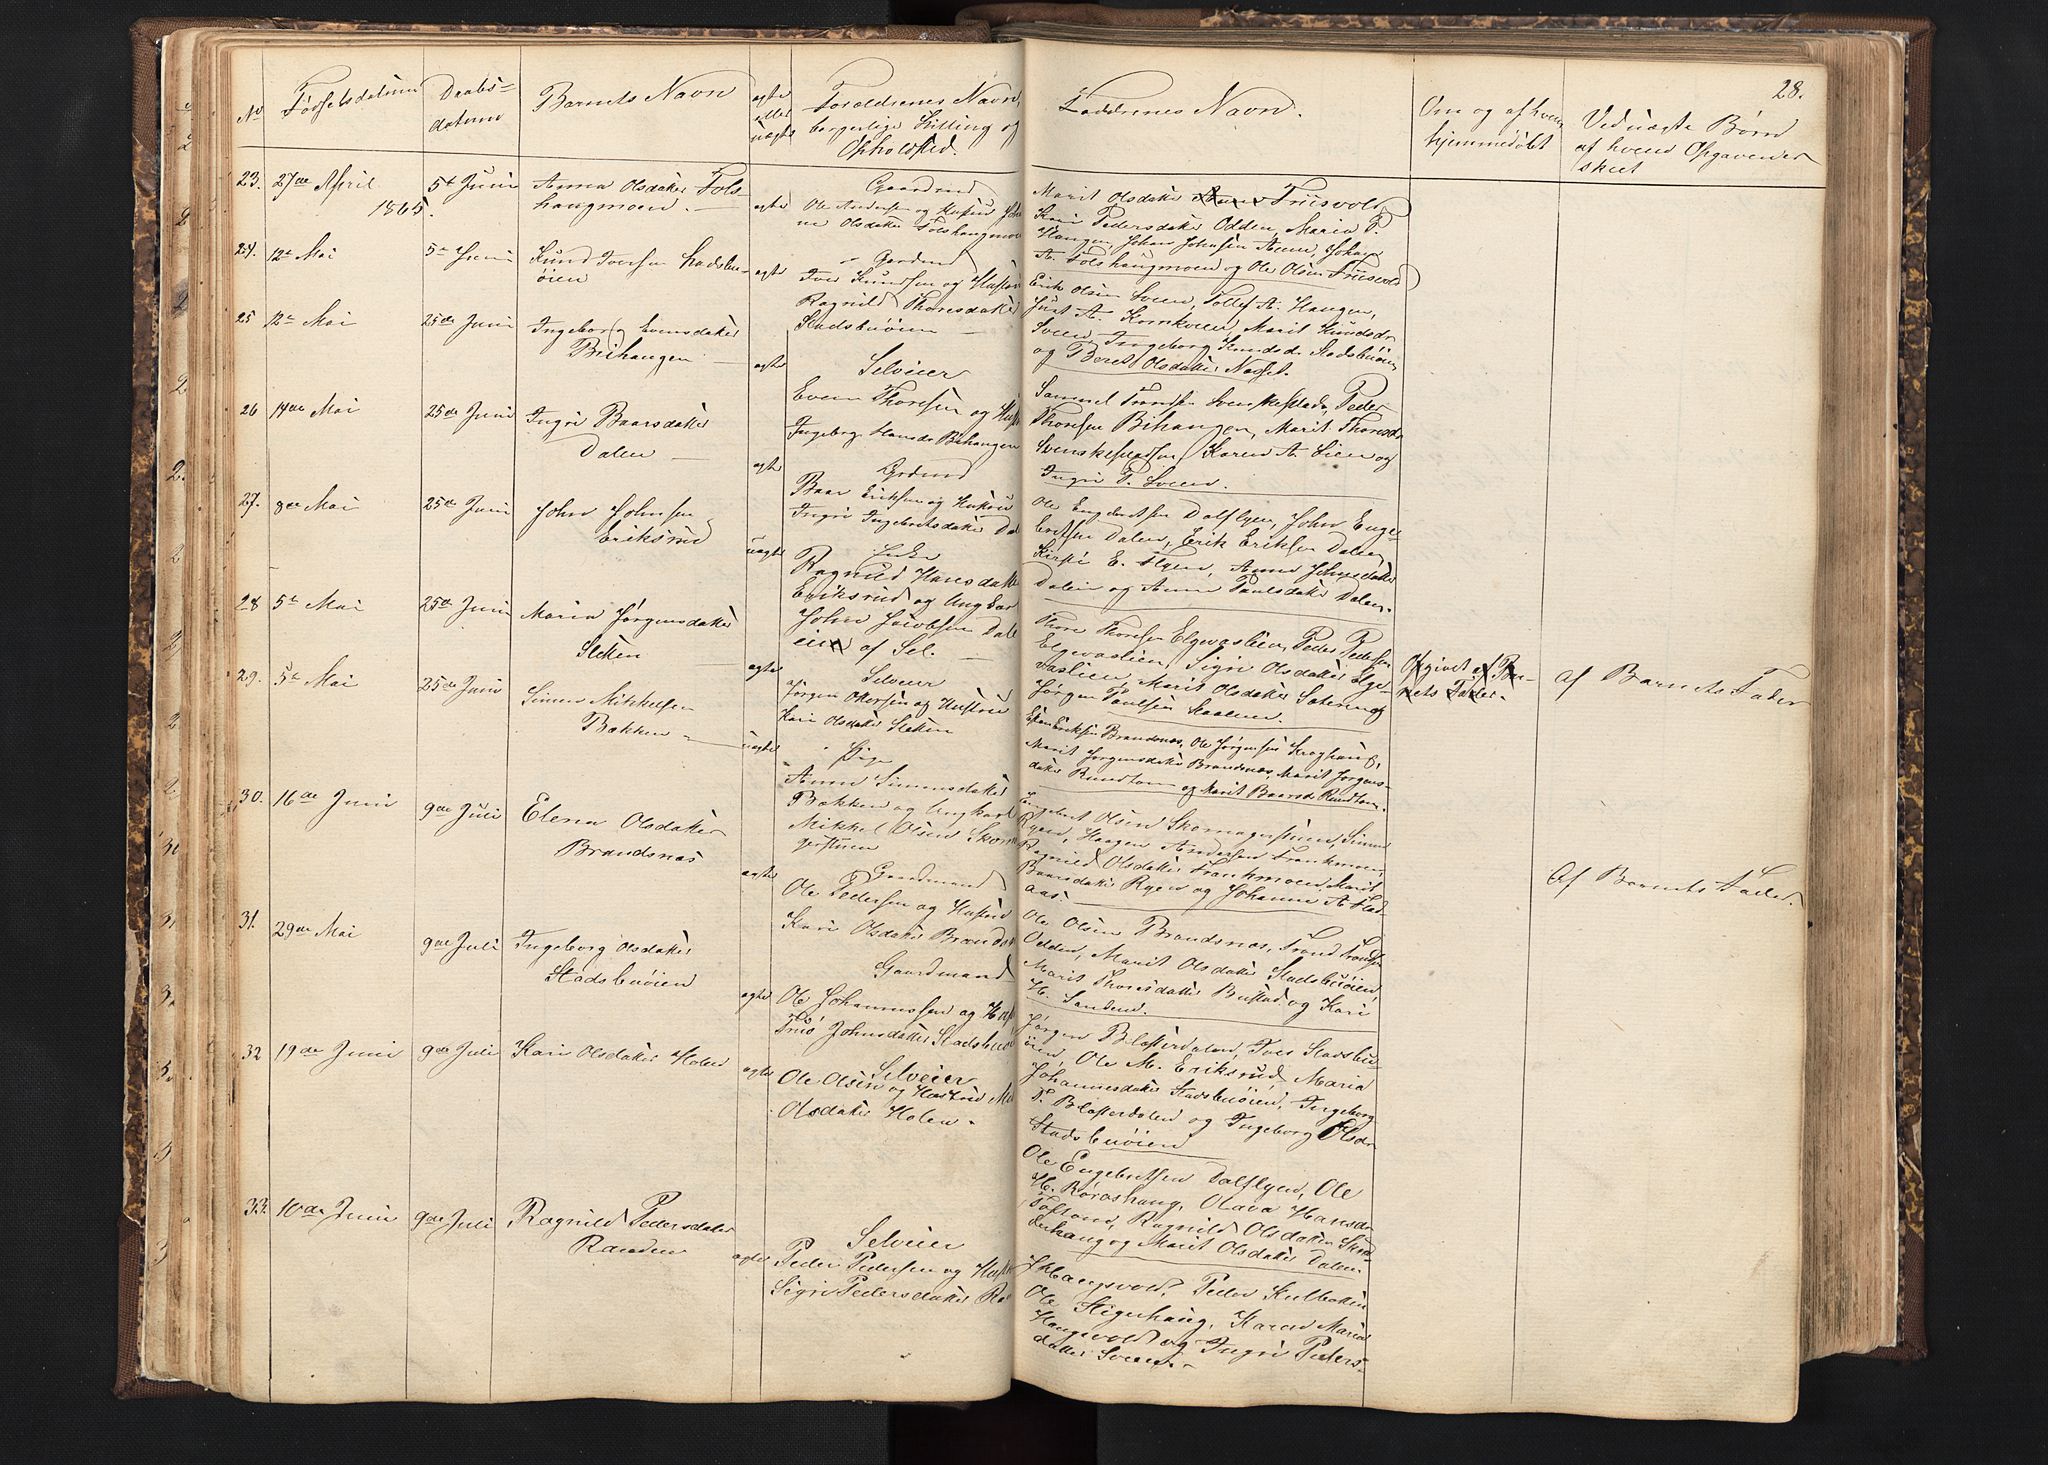 28.
No
Fødselsdatum
Daabs-
datum
Barnets Navn
ægte
eller
uægte
Forældrenes Navn,
borgerlige Stilling og
Opholdsted.
Faddrenes Navn.
Om og af hvem
hjemmedøbt
Ved uægte Børn
af hvem Opgaven er
skeet
23. 27de April
1865.
5te Juni
Anna Olsdatter Tols-
haugmoen. —
ægte
Gaardmd
Ole Andersen og Hustru Joha
ne Olsdatter Tolshaugmoen
Marit Olsdatter Friisvold,
Kari Pedersdatter Odden, Maria P.
Haugen, Johan Johnsen Aaen, Johan
A. Tolshaugmoen og Ole Olsen Friisvold
24. 12te Mai
5te Juni
Knud Iversen Stadsbu-
øien
ægte
Gaardmd
Iver Knudsen og Hustru
Ragnild Thoresdatter
Stadsbuøien —
Erik Olsen Sveen, Tollef A. Haugen,
Just A. Kornkveen, Marit Knudsdr
Sveen, Ingeborg Knudsd. Stadsbuøien
og Beret Olsdatter Næsset.
25 12te Mai
25de Juni
Ingeborg Evensdatter
Brihaugen —
ægte
Selveier
Even Thoresen og Hust
Ingeborg Hansdr Brihaugen
Samuel Trondsen Svenskepladsen, Peder
Thoresen Bihaugen, Marit Thoresdr
Svenskepladsen, Karen A. Lien og
Ingri P. Sveen.
26 14de Mai
25de Juni
Ingri Baarsdatter
Dalen —
ægte
Grdmd
Baar Eriksen og Hustru
Ingri Ingebretsdatter Dal
Ole Engebretsen Dalflyen, John Enge-
bretsen Dalen, Erik Eriksen Dalen
Kirsti E. Flyen, Anne Johnsdatter
Dalen og Anne Paulsdatter Dalen.
27. 8de Mai
25de Juni
John Johnsen
Eriksrud
uægte
Enke
Ragnild Hansdatter
Eriksrud og Ungkar
John Jacobsen Dal
eien af Sel. —
Thore Thoresen Elgevaslien, Peder Pedersen
Elgevaslien, Sigri Olsdatter Elge-
vaslien, Marit Olsdatter Sæteren og
Jørgen Paulsen Skalmen.
Opgivet af Bar-
nets Fader.
Af Barnets Fader
28 5te Mai
25de Juni
Maria Jørgensdatter
Sletten
ægte
Selveier
Jørgen Ottersen og Hustru
Kari Olsdatter Sletten
Esten Eriksen Brandsnæs, Ole Jørgensen Kroghaug,
Marit Jørgensdatter Brandsnæs, Marit Jørgens-
datter Rundtom og Marit Baarsdr Rundtom.
29. 5te Mai
25de Juni
Simen Mikkelsen
Bækken —
uægte
Pige
Anne Simensdatter
Bækken og Ungkarl
Mikkel Olsen Skoma
gerstuen
Engebret Olsen Skomagerstuen, Simen
Ryen, Haagen Andersen Trankmoen,
Ragnild Olsdatter Trankmoen, Marit
Baarsdatter Ryen og Johanne A. Slad-
aas.
Af Barnets Fader.
30. 16de Juni
9de Juli
Elena Olsdatter
Brandsnæs
ægte
Gaardmand
Ole Pedersen og Hustru
Kari Olsdatter Brands
Ole Olsen Brandsnæs, Trond Trondsen
Odden, Marit Olsdatter Stadsbuøien,
Marit Thoresdatter Bustad og Kari
H. Sanden.
31. 29de Mai
9de Juli
Ingeborg Olsdatter
Stadsbuøien
ægte
Gaardmand
Ole Johannesen og Hust
Friø Johnsdatter Stadsbuøi
Jørgen Blesterdalen, Iver Stadsbu-
øien, Ole M. Eriksrud, Maria
Johannesdatter Stadsbuøien, Ingeborg
T. Blesterdalen og Ingeborg Olsdr
Stadsbuøien
32 19de Juni
9de Juli
Kari Olsdatter Holen
ægte
Selveier
Ole Olsen og Hustru Ma
Olsdatter Holen.
Ole Engebretsen Dalflyen, Ole
H. Rørashaug, Olava Hansdr
Toftom, Ragnild Olsdatter Skad-
denhaug og Marit Olsdatter Dalen.
33. 10de Juni
9de Juli
Ragnild Pedersdatter
Randen
ægte
Selveier
Peder Pedersen og Hust
Sigri Pedersdatter Ra
J. Haugsvold, Peder Kulbakken
Ole Stigerhaug, Karen Maria
Haugsvold og Ingri Peders-
datter Sveen.